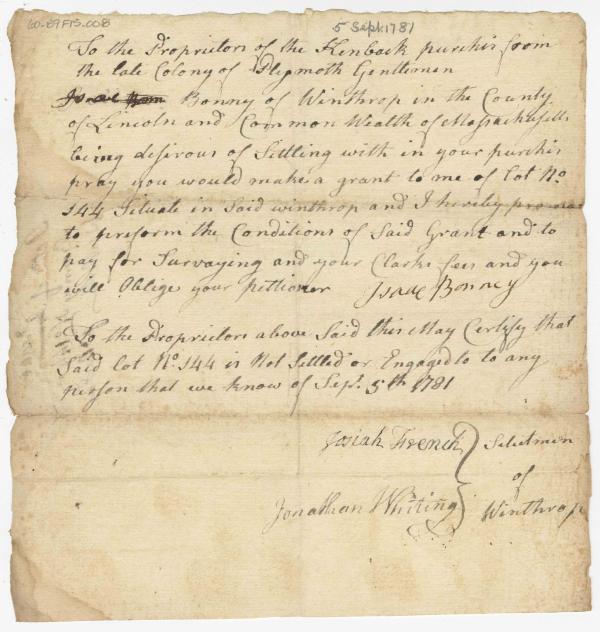 60-89FTS.008
5 Sept 1781
To the Proprietors of the Kenback purchis from
the late Colony of Plymoth Gentlemen
Bonny of Winthrop in the County
of Lincoln and Common Wealth of Massachusetts
being desirous of Sittling with in your purchis
pray you would make a grant to me of Lot No.
144 Situate in Said winthrop and I hereby promas
to preform the Conditions of Said Grant and to
pay for Survaying and your Clarks fees and you
will Oblige your pittioner Isaac Bonney
To the Proprietors above Said this May Certify that
Said lot No. 144 is Not Settled or Engaged to to any
person that we know of Sept. 5th 1781
Josiah French
Selectmen
of
Jonathan Whiting
Winthrop